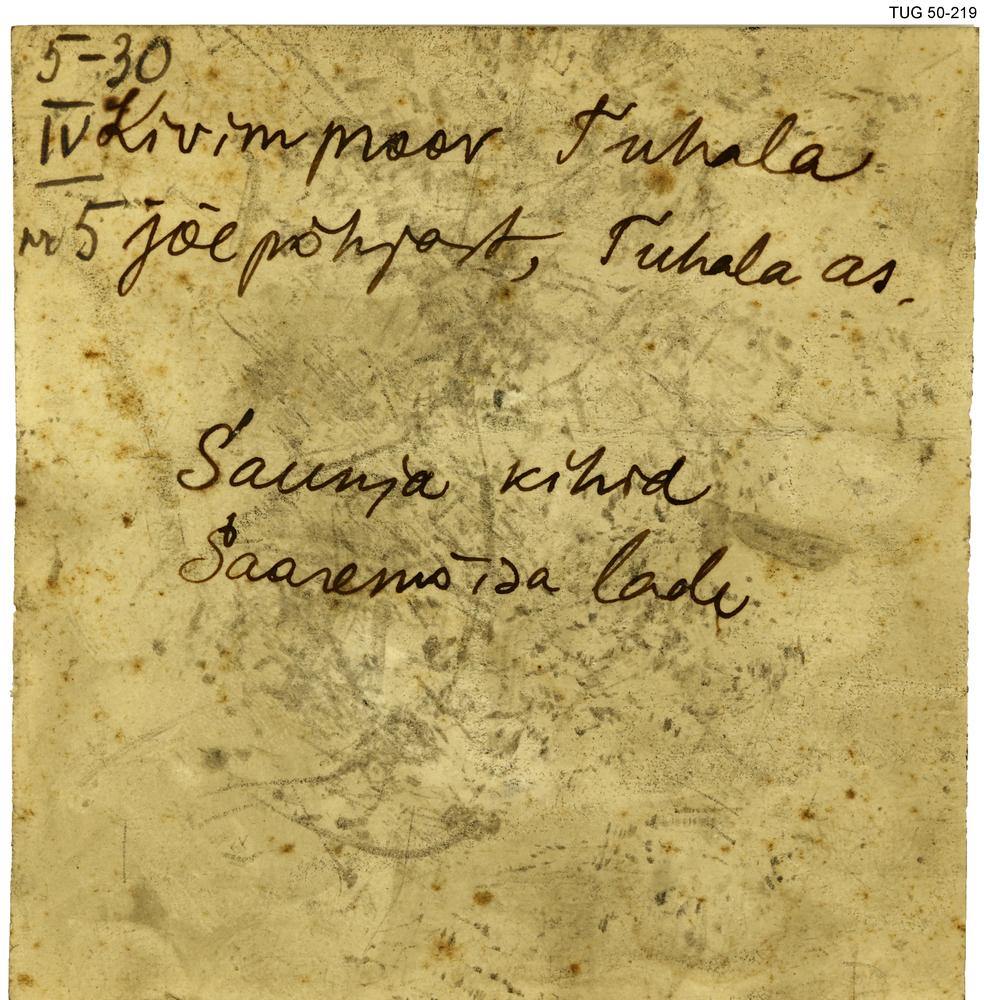 TUG 50-219
5-30
IV Kivim proov Tuhala
nr 5 jõe põhjast, Tuhala as.
Saunja kihid
Saaremõisa lade